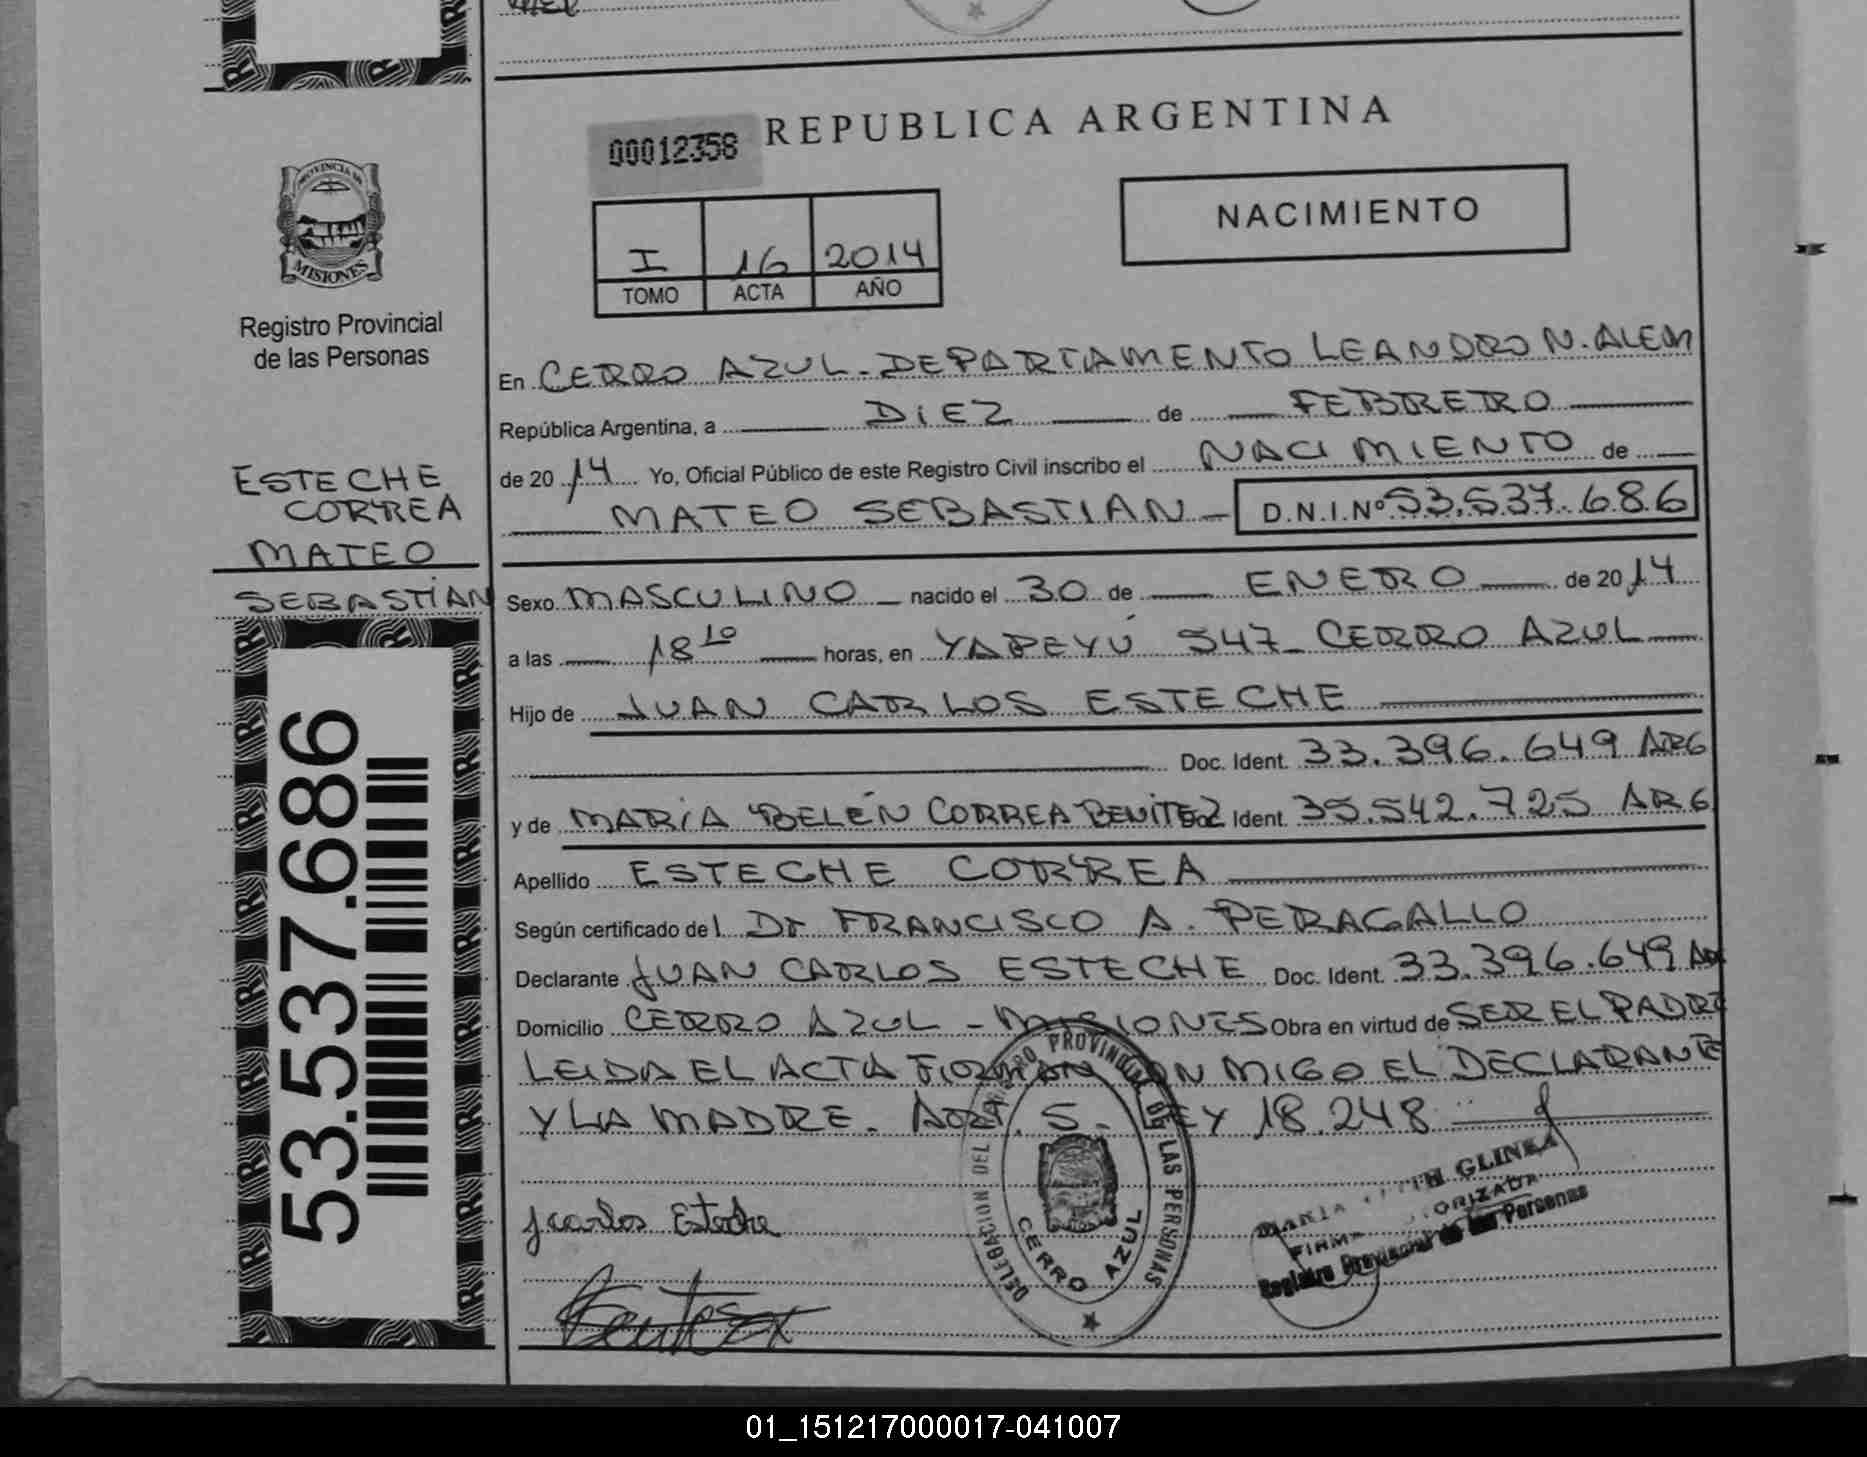 REPUBLICA ARGENTINA
00012358
NACIMIENTO
I 16 2014
TOMO ACTA AÑO
PROVINCIA DE
MISIONES
Registro Provincial
de las Personas
ESTECHE
CORREA
MATEO
SEBASTIÁN
53.537.686
En CERRO AZUL - DEPARTAMENTO LEANDRO N. ALEM
República Argentina, a DIEZ de FEBRERO
de 2014 Yo, Oficial Público de este Registro Civil inscribo el NACIMIENTO de
MATEO SEBASTIAN D.N.I.Nº 53.537.686
Sexo MASCULINO nacido el 30 de ENERO de 2014
a las 18 10 horas, en YAPEYÚ 547 - CERRO AZUL
Hijo de JUAN CARLOS ESTECHE
Doc. Ident. 33.396.649 ARG
y de MARÍA BELÉN CORREA BENITEZ Ident. 35.542.725 ARG
Apellido ESTECHE CORREA
Según certificado del Dr FRANCISCO A. PERAGALLO
Declarante JUAN CARLOS ESTECHE Doc. Ident. 33.396.649 AR
Domicilio CERRO AZUL - MISIONES Obra en virtud de SER EL PADRE
LEIDA EL ACTA FIRMAN CON MIGO EL DECLARANTE
Y LA MADRE. ART. 5. LEY 18.248
J carlos Esteche
DELEGACION DEL REGISTRO PROVINCIAL DE LAS PERSONAS
CERRO AZUL
MARIA GLINKA
FIRMA AUTORIZADA
Registro Provincial de las Personas
01_151217000017-041007